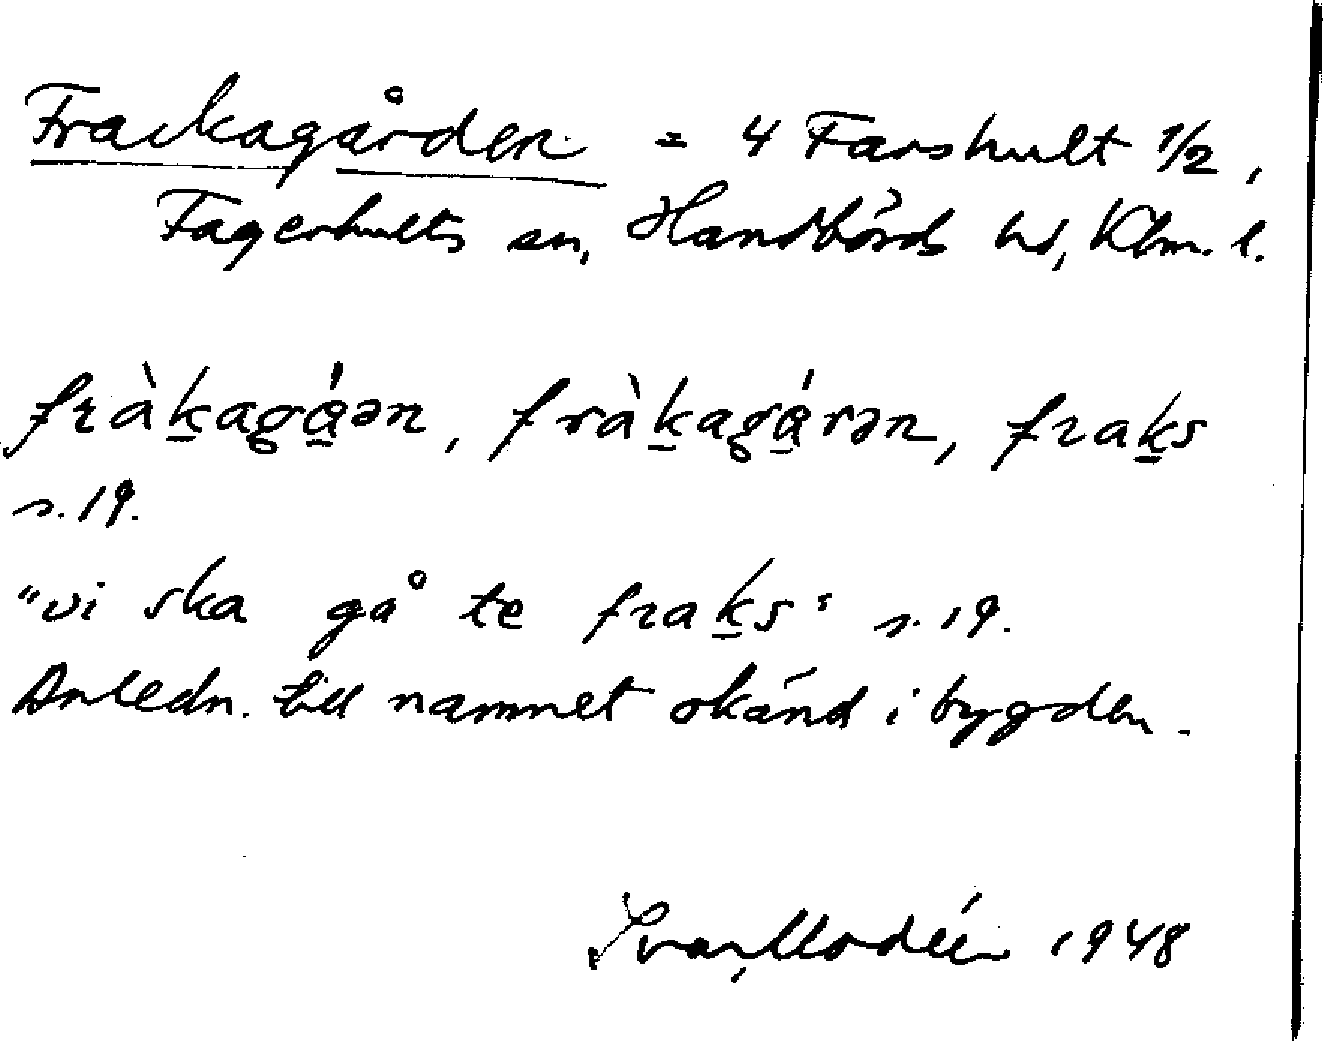 Frackagården = 4 Farshult 1/2,
Fagerhults sn, Handbörds hd, Klm. l.
fràk̲agá̲ən, fràk̲agá̲rən, frak̲s
s. 19.
"vi ska gå te frak̲s" s. 19.
Anledn. till namnet okänd i bygden.
Ivar Modéer 1948